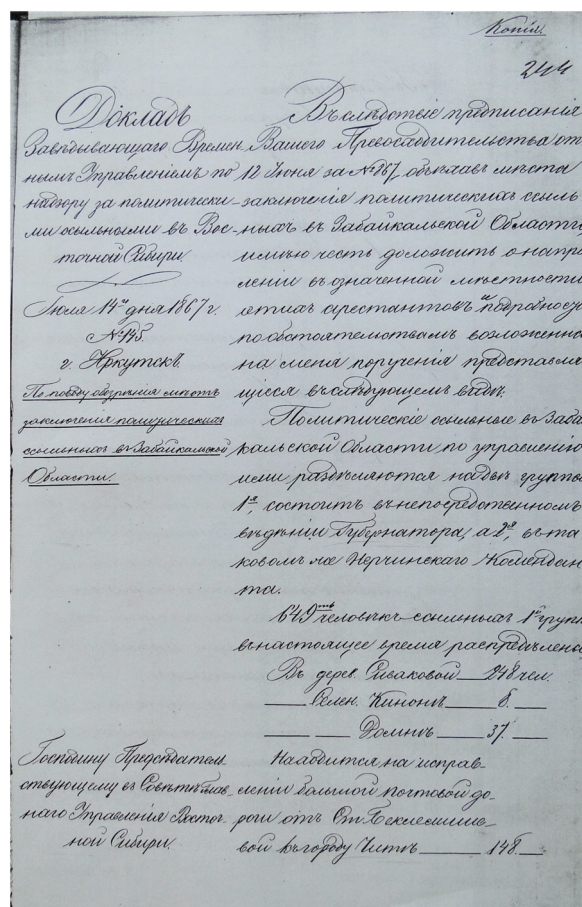 Копія.
244
Докладъ
Завѣдывающаго Времен-
нымъ Управленіемъ по
надзору за политически-
ми ссыльными въ Вос-
точной Сибири
Іюля 14го дня 1867 г.
№ 145.
г. Иркутскъ.
По поводу обозрѣнія мѣстъ
заключенія политическихъ
ссыльныхъ въ Забайкальской
Области.
Господину Предсѣдатель-
ствующему въ Совѣтѣ Глав-
наго Управленія Восточ-
ной Сибири.
Въ слѣдствіе предписанія
Вашего Превосходительства отъ
12 Іюня за № 267, объѣхавъ мѣста
заключенія политическихъ ссыль-
ныхъ въ Забайкальской Области,
имѣю честь доложить о напра
леніи въ означенной мѣстности
этихъ арестантовъ и подробности
по обстоятельствамъ возложенна
на меня порученія представля
щіеся въ слѣдующемъ видѣ.
Политическіе ссыльные въ Заба
кальской Области по управленію
ими раздѣляются на двѣ группы
1я, состоитъ въ непосредственномъ
вѣдѣніи Губернатора, а 2я, въ та
ковомъ же Нерчинскаго Комендан
та.
649ть человѣкъ ссыльныхъ 1й групп
въ настоящее время распредѣлены
Въ дерев. Сиваковой 248 чел.
Селен. Кинонъ 8.
Домнѣ 37.
Находится на исправ-
леніи большой почтовой до-
роги отъ Ст. Беклемише-
вой къ городу Читѣ 148.